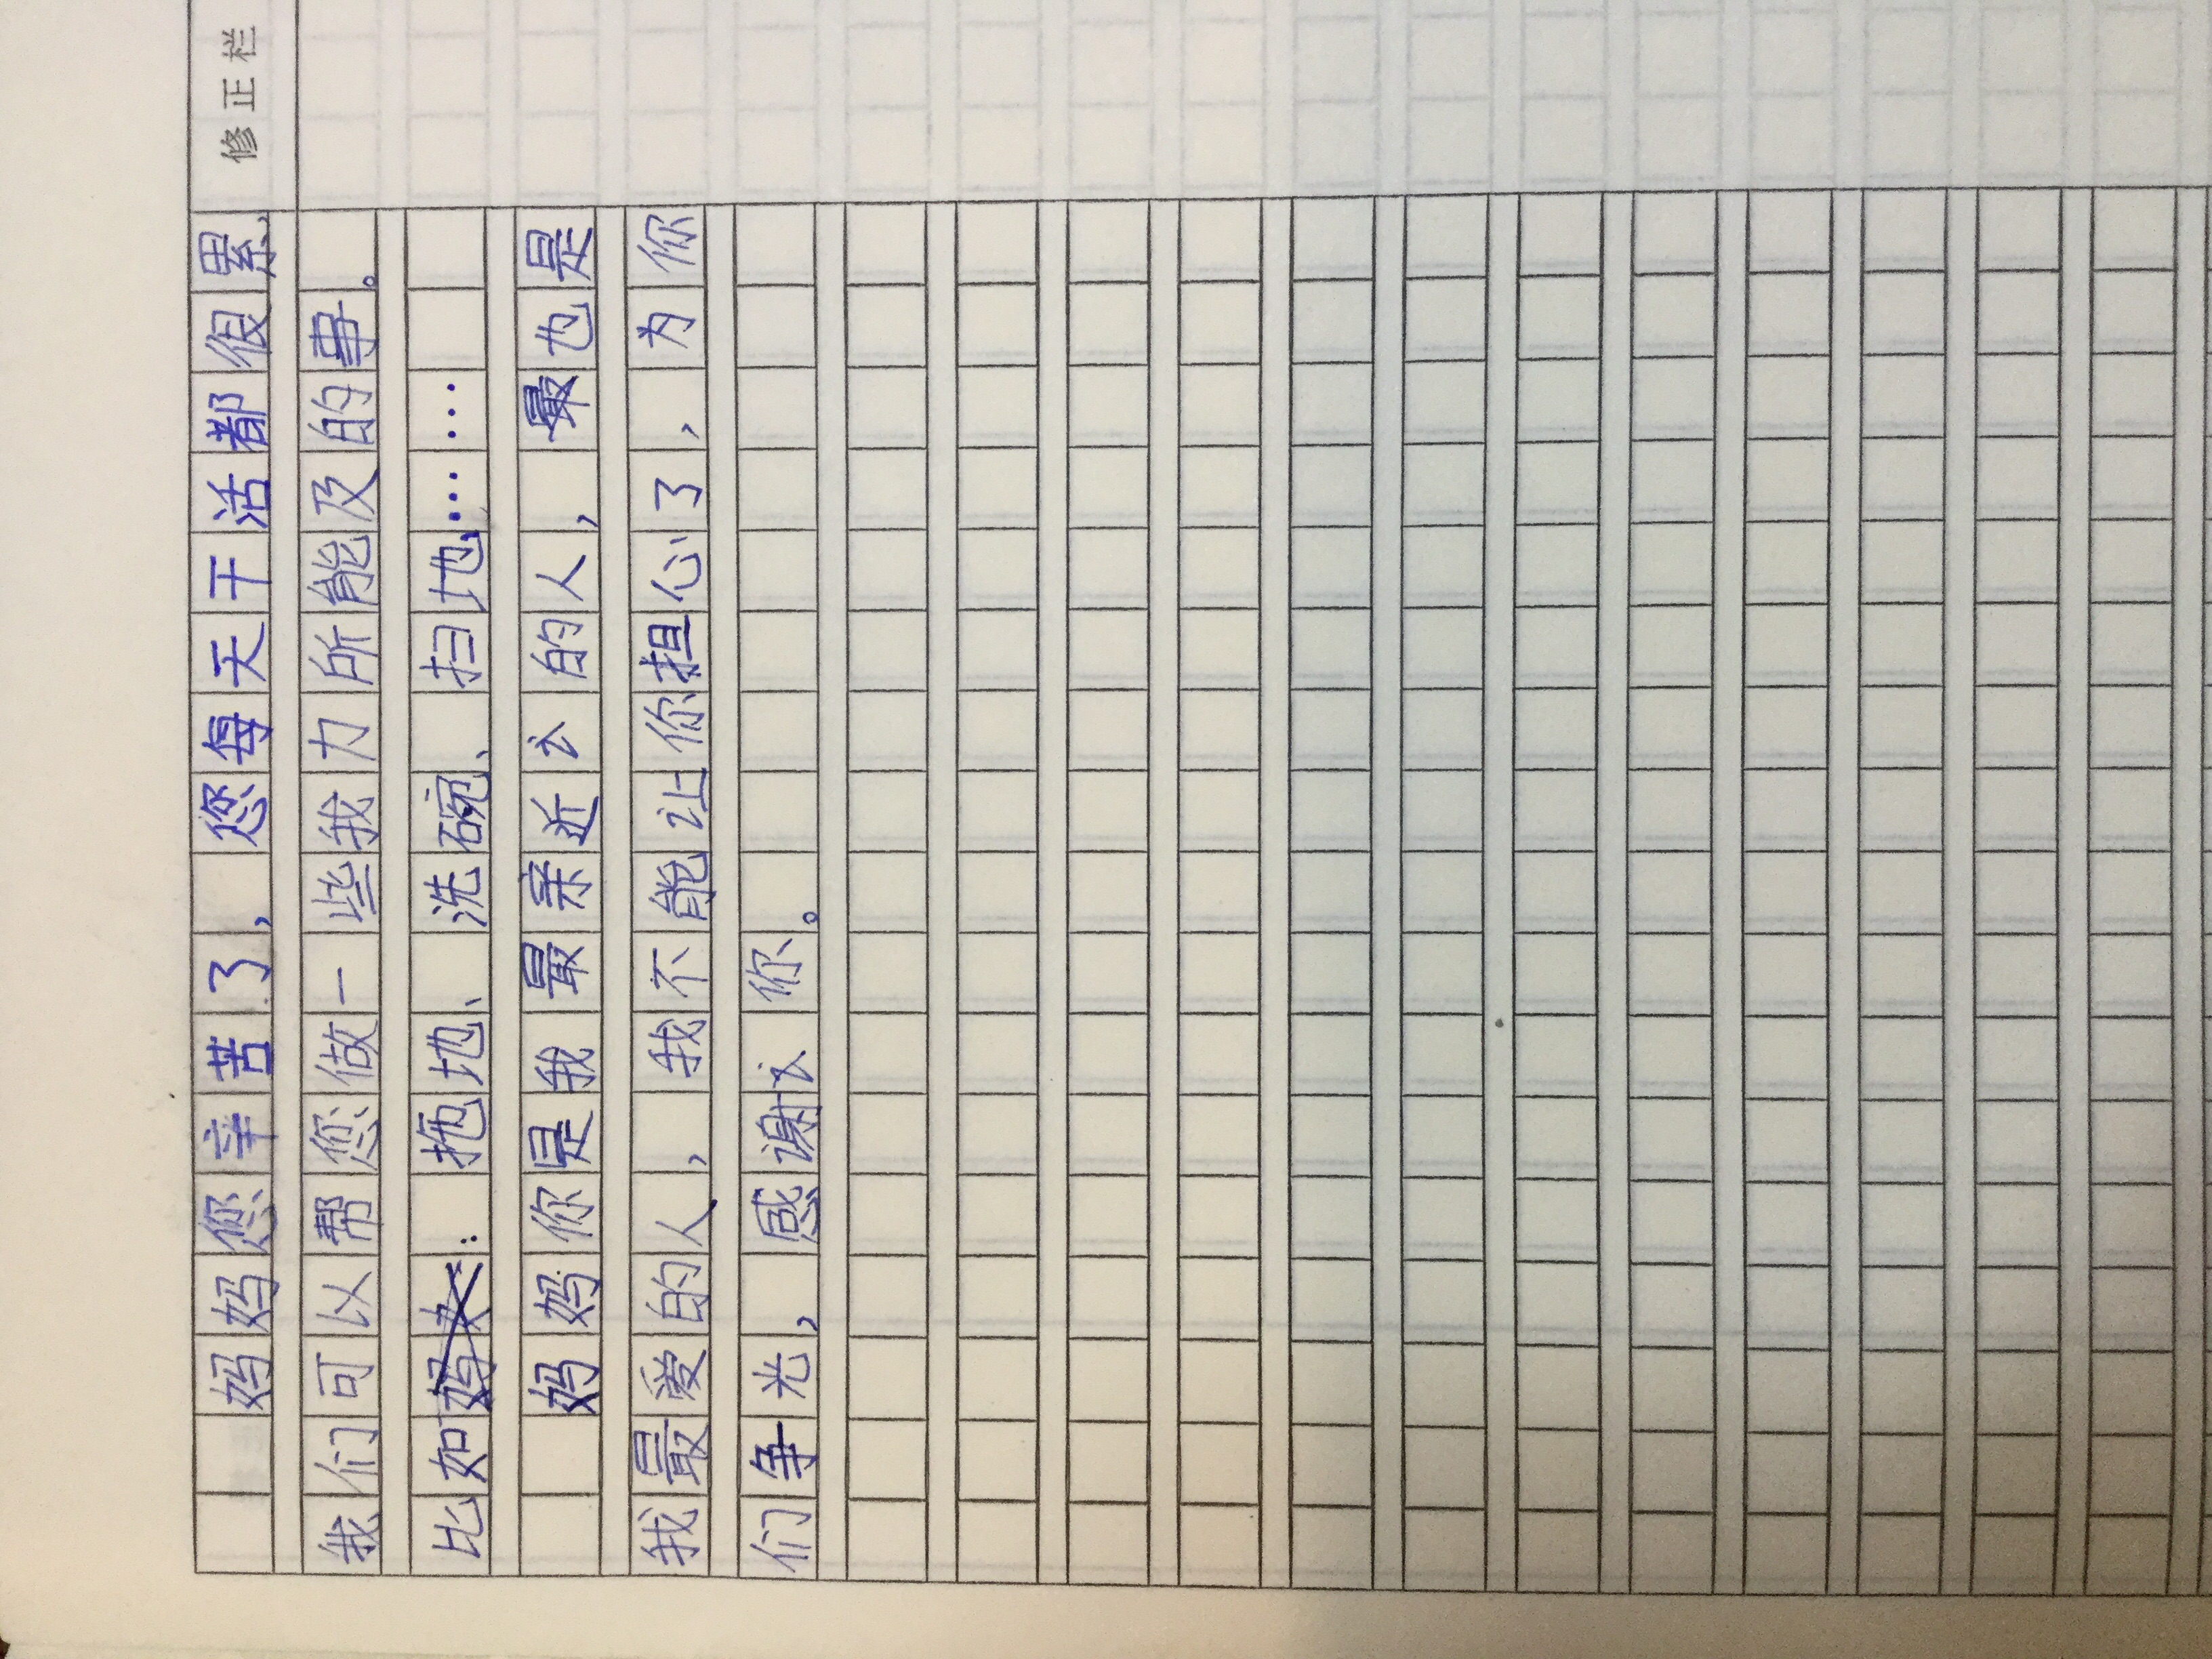 修正栏
妈妈您辛苦了，您每天干活都很累，
我们可以帮您做一些我力所能及的事。
比如：拖地、洗碗、扫地……
妈妈你是我最亲近的人，最也是
我最爱的人，我不能让你担心了，为你
们争光，感谢你。